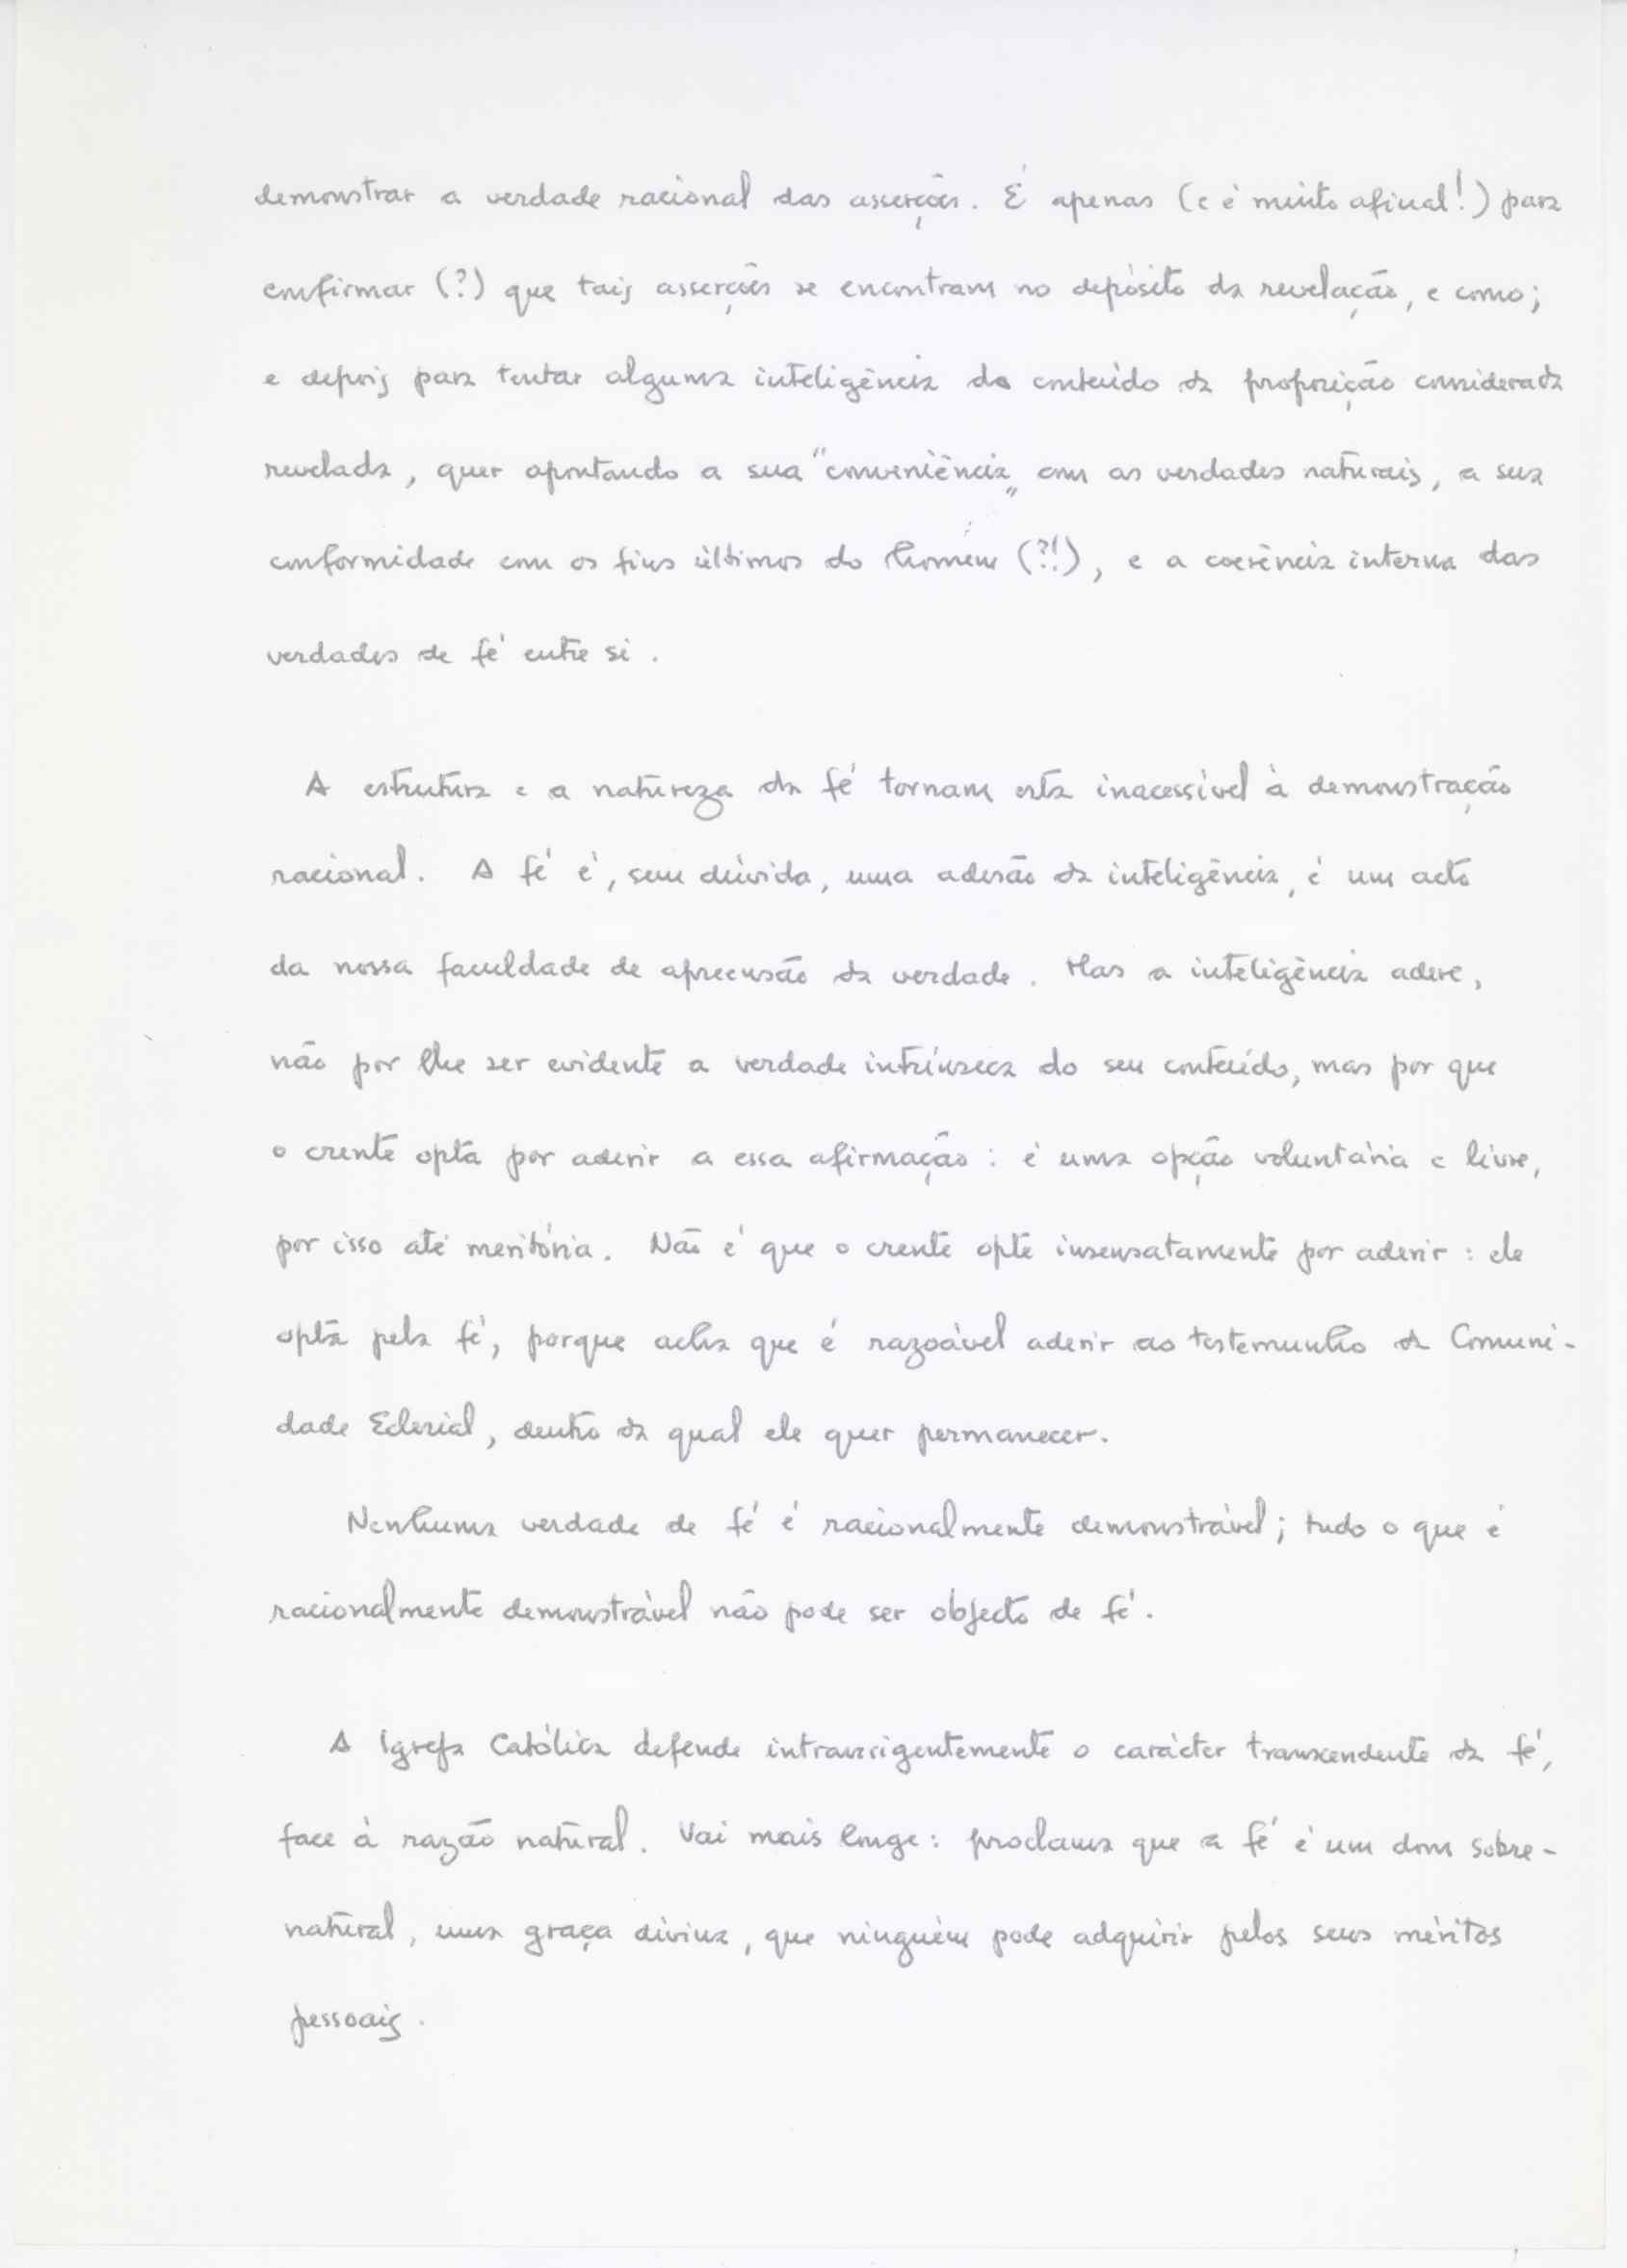 demonstrar a verdade racional das asserções. É apenas (e é muito afinal!) para
confirmar (?) que tais asserções se encontram no depósito da revelação, e como;
e depois para tentar alguma inteligência do conteúdo da proposição considerada
revelada, quer apontando a sua "conveniência" com as verdades naturais, a sua
conformidade com os fins últimos do homem (?!), e a coerência interna das
verdades de fé entre si.
A estrutura e a natureza da fé tornam esta inacessível à demonstração
racional. A fé é, sem dúvida, uma adesão da inteligência, é um acto
da nossa faculdade de apreensão da verdade. Mas a inteligência adere,
não por lhe ser evidente a verdade intrínseca do seu conteúdo, mas por que
o crente opta por aderir a essa afirmação: é uma opção voluntária e livre,
por isso até meritória. Não é que o crente opte insensatamente por aderir: ele
opta pela fé, porque acha que é razoável aderir ao testemunho da Comuni-
dade Eclesial, dentro da qual ele quer permanecer.
Nenhuma verdade de fé é racionalmente demonstrável; tudo o que é
racionalmente demonstrável não pode ser objecto de fé.
A Igreja Católica defende intransigentemente o carácter transcendente da fé,
face à razão natural. Vai mais longe: proclama que a fé é um dom sobre-
natural, uma graça divina, que ninguém pode adquirir pelos seus méritos
pessoais.